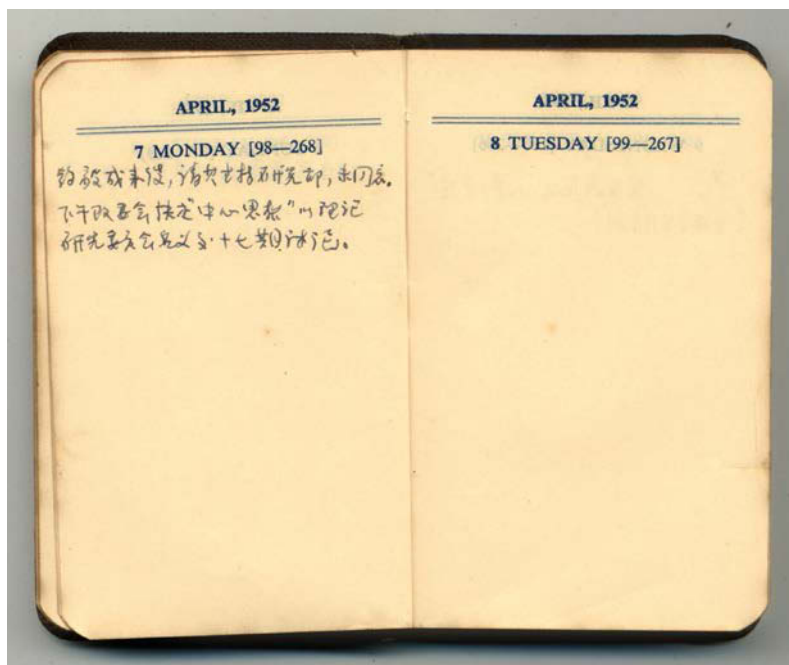 APRIL, 1952
7 MONDAY [98—268]
约 成来馆，请其主持研究部，未同意。
下午 委会决定"中心思想"以理论
研究委员会名义 十七期讨论。
APRIL, 1952
8 TUESDAY [99—267]